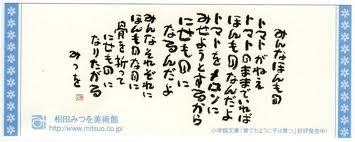 みんなほんもの
トマトがねえ
トマトのままでいれば
ほんものなんだよ
トマトをメロンに
みせようとするから
にせものに
なるんだよ
みんなそれぞれに
ほんものなのに
骨を折って
にせものに
なりたがる
みつを
相田みつを美術館
http://www.mitsuo.co.jp/
小学館文庫「育てたように子は育つ」好評発売中!